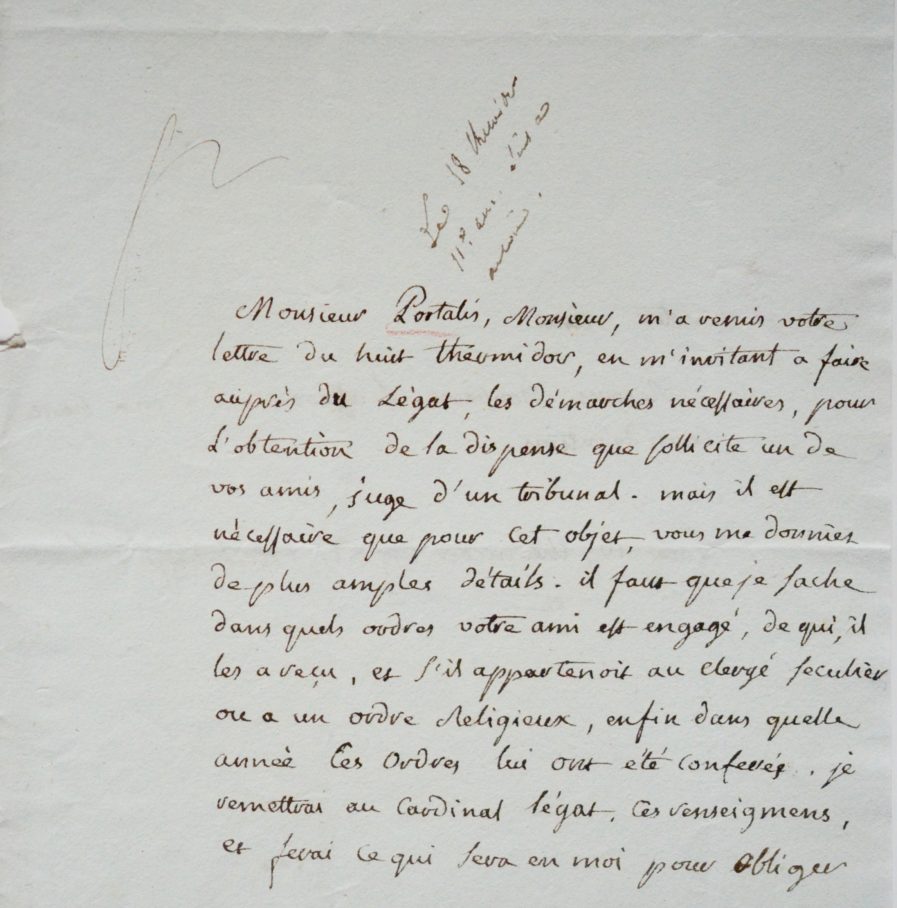 Le 18 thermidor
11e an.
Monsieur Portalis, Monsieur, m'a remis votre
lettre du huit thermidor, en m'invitant a faire
auprès du Légat, les démarches nécessaires, pour
L'obtention de la dispense que sollicite un de
vos amis, juge d'un tribunal. mais il est
nécessaire que pour cet objet, vous me donniez
de plus amples détails. il faut que je sache
dans quels ordres votre ami est engagé, de qui, il
les a reçu, et s'il appartenoit au clergé seculier
ou a un ordre Religieux, enfin dans quelle
année Ces Ordres lui ont été conferés. je
remettrai au Cardinal légat, Ces renseignmens,
et ferai ce qui sera en moi pour obliger